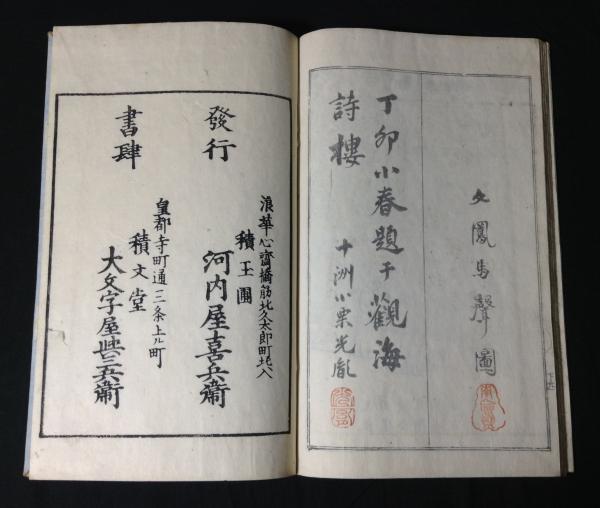 文鳳馬聲圖
丁卯小春題于觀海
詩樓
十洲小栗光胤
發行
書肆
浪華心齋橋筋北久太郎町北入
積玉圃
河内屋喜兵衞
皇都寺町通三条上ル町
積文堂
大文字屋與三兵衞